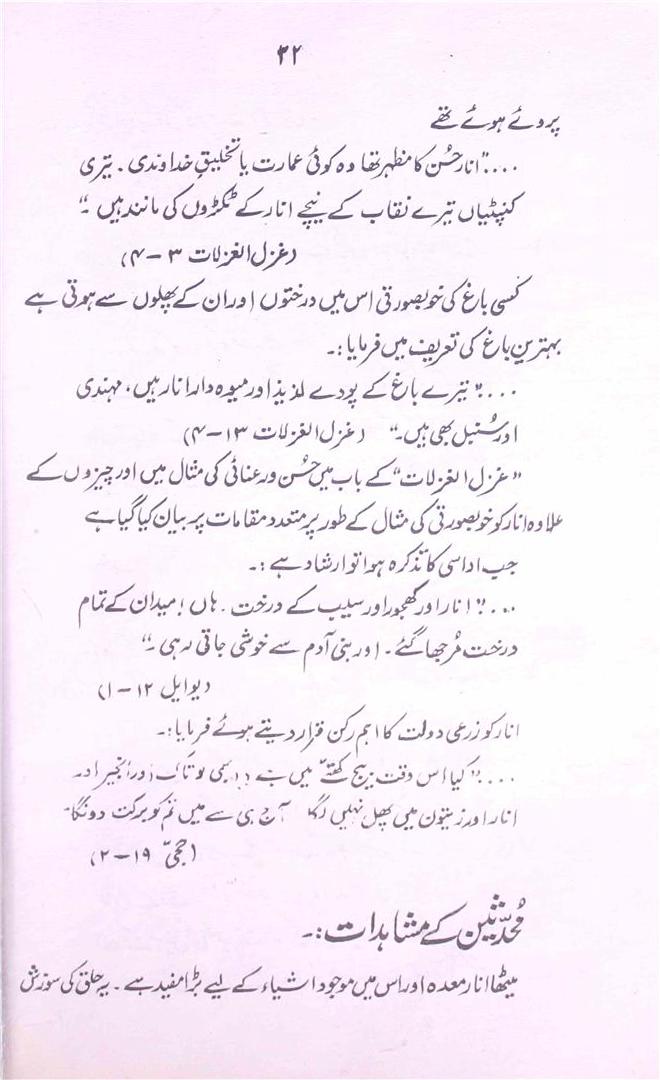 ۳۲
پروئے ہوئے تھے
...."انار حُسن کا مظہر تھا وہ کوئی عمارت یا تخلیقِ خداوندی۔ تیری
کنپٹیاں تیرے نقاب کے نیچے انار کے ٹکڑوں کی مانند ہیں۔"
(غزل الغزلات ۳-۴)
کسی باغ کی خوبصورتی اس میں درختوں اور ان کے پھلوں سے ہوتی ہے
بہترین باغ کی تعریف میں فرمایا:۔
...." تیرے باغ کے پودے لذیذ اور میوہ دار انار ہیں، مہندی
اور سُنبل بھی ہیں۔" (غزل الغزلات ۱۳-۴)
"غزل الغزلات" کے باب میں حُسن و رعنائی کی مثال میں اور چیزوں کے
علاوہ انار کو خوبصورتی کی مثال کے طور پر متعدد مقامات پر بیان کیا گیا ہے
جب اداسی کا تذکرہ ہوا تو ارشاد ہے:۔
...." انار اور کھجور اور سیب کے درخت۔ ہاں! میدان کے تمام
درخت مُرجھا گئے۔ اور بنی آدم سے خوشی جاتی رہی۔"
(یوایل ۱۲-۱)
انار کو زرعی دولت کا اہم رکن قرار دیتے ہوئے فرمایا:۔
...." کیا اس وقت بیج کھتے میں ہے ابھی تو تاک اور انجیر اور
انار اور زیتون میں پھل نہیں لگا آج ہی سے میں تم کو برکت دونگا۔
(حجیّ ۱۹-۲)
مُحدّثین کے مشاہدات:۔
میٹھا انار معدہ اور اس میں موجود اشیاء کے لیے بڑا مفید ہے۔ یہ حلق کی سوزش